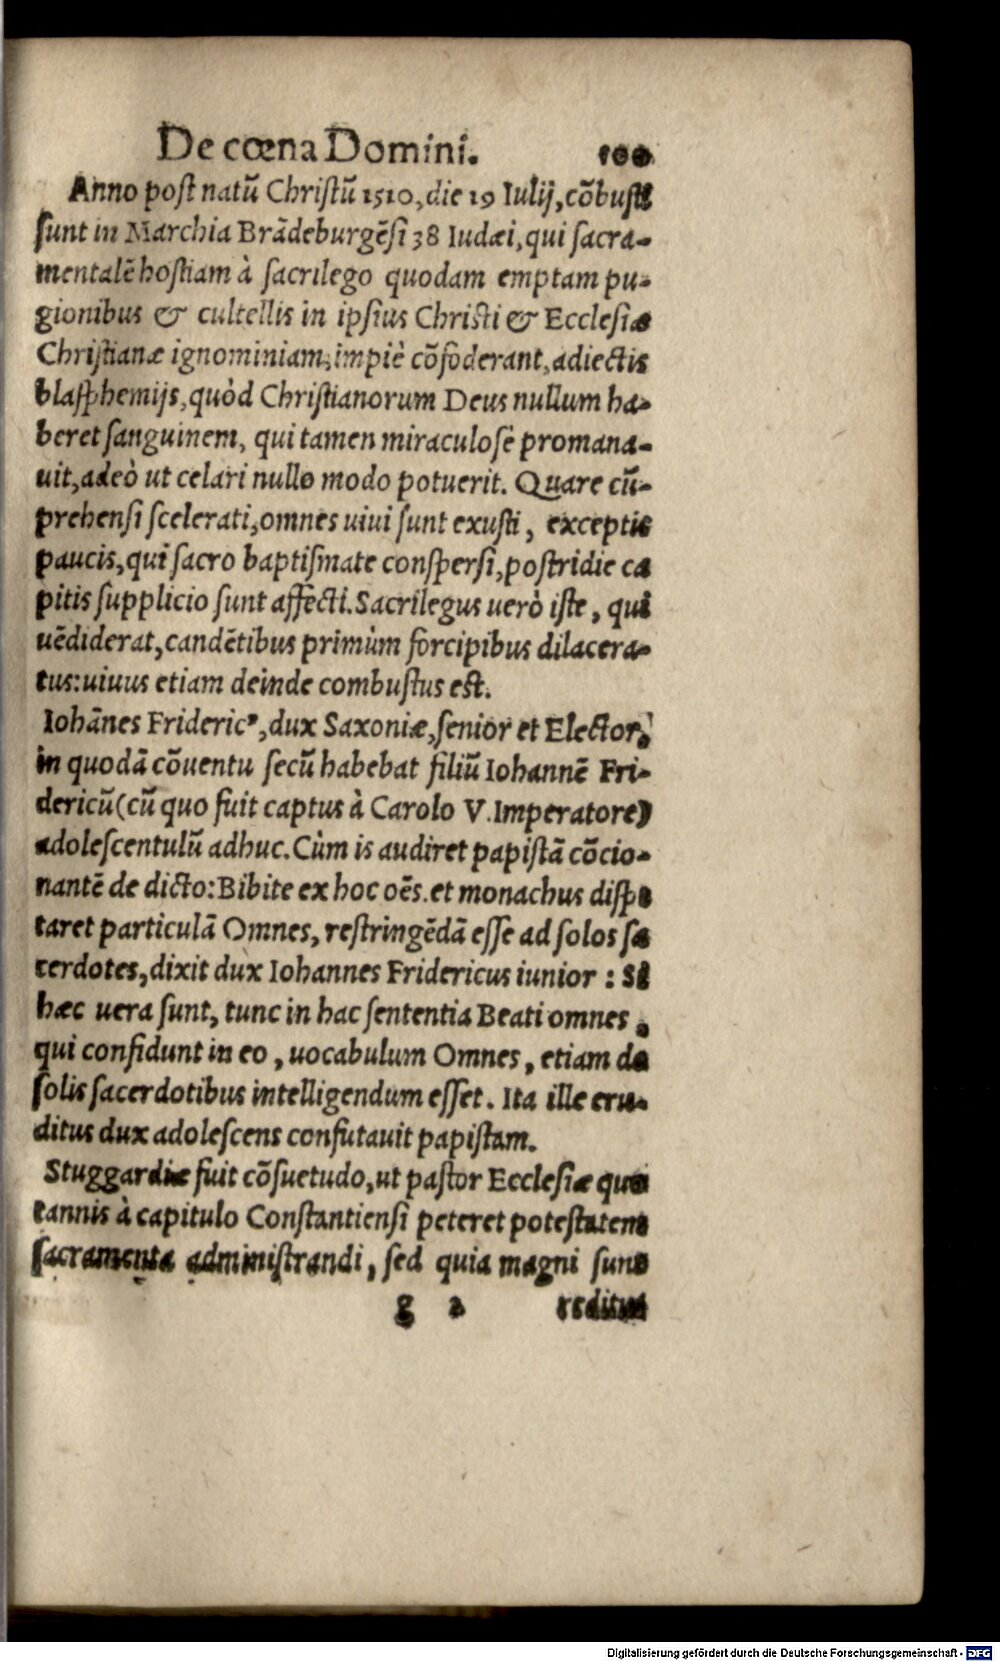 De cœna Domini. 100
Anno post natũ Christũ 1510, die 19 Iulij, cõbusti
sunt in Marchia Brãdeburgẽsi 38 Iudæi, qui sacra-
mentalẽ hostiam à sacrilego quodam emptam pu-
gionibus & cultellis in ipsius Christi & Ecclesiæ
Christianæ ignominiam, impiè cõfoderant, adiectis
blasphemijs, quòd Christianorum Deus nullum ha-
beret sanguinem, qui tamen miraculosè promana-
uit, adeò ut celari nullo modo potuerit. Quare cũ-
prehensi scelerati, omnes uiui sunt exusti, exceptis
paucis, qui sacro baptismate conspersi, postridie ca
pitis supplicio sunt affecti. Sacrilegus uerò iste, qui
uẽdiderat, candẽtibus primùm forcipibus dilacera-
tus: uiuus etiam deinde combustus est.
Iohãnes Frideric⁹, dux Saxoniæ, senior et Elector,
in quodã cõuentu secũ habebat filiũ Iohannẽ Fri-
dericũ (cũ quo fuit captus à Carolo V. Imperatore)
adolescentulũ adhuc. Cùm is audiret papistã cõcio-
nantẽ de dicto: Bibite ex hoc oẽs. et monachus dispu
taret particulã Omnes, restringẽdã esse ad solos sa
cerdotes, dixit dux Iohannes Fridericus iunior: Si
hæc uera sunt, tunc in hac sententia Beati omnes,
qui confidunt in eo, uocabulum Omnes, etiam de
solis sacerdotibus intelligendum esset. Ita ille eru-
ditus dux adolescens confutauit papistam.
Stuggardiæ fuit cõsuetudo, ut pastor Ecclesiæ quo
tannis à capitulo Constantiensi peteret potestatem
sacramenta administrandi, sed quia magni sunt
g 2 reditus
Digitalisierung gefördert durch die Deutsche Forschungsgemeinschaft - DFG